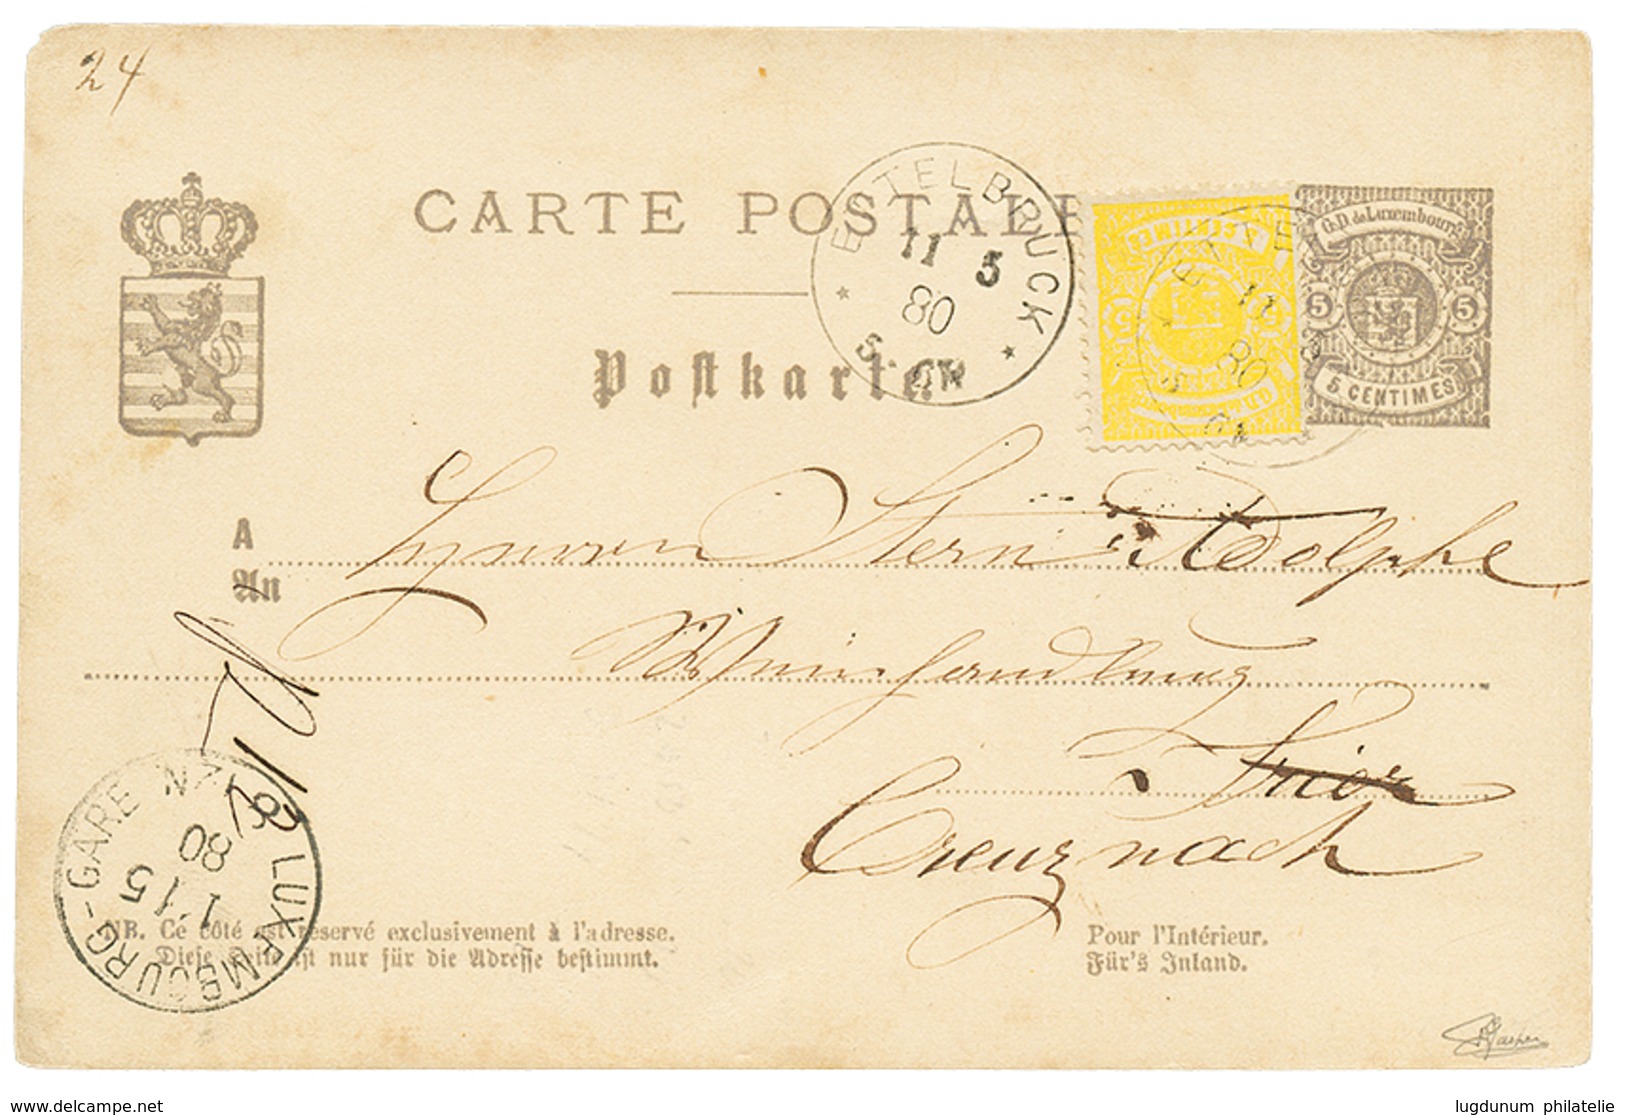 24
CARTE POSTALE
Postkarte
ETTELBRUCK
11 5
80
5
G.D. de Luxembourg
5 5
5 CENTIMES
5 CENTIMES
11
80
A
An
Herren Stern & Adolphe
Weinhandlung
Trier
Creuznach
LUXEMBOURG-GARE
1-15
80
NB. Ce côté est réservé exclusivement à l'adresse.
Diese Seite ist nur für die Adresse bestimmt.
Pour l'Intérieur.
Für's Inland.
www.delcampe.net
lugdunum philatelie